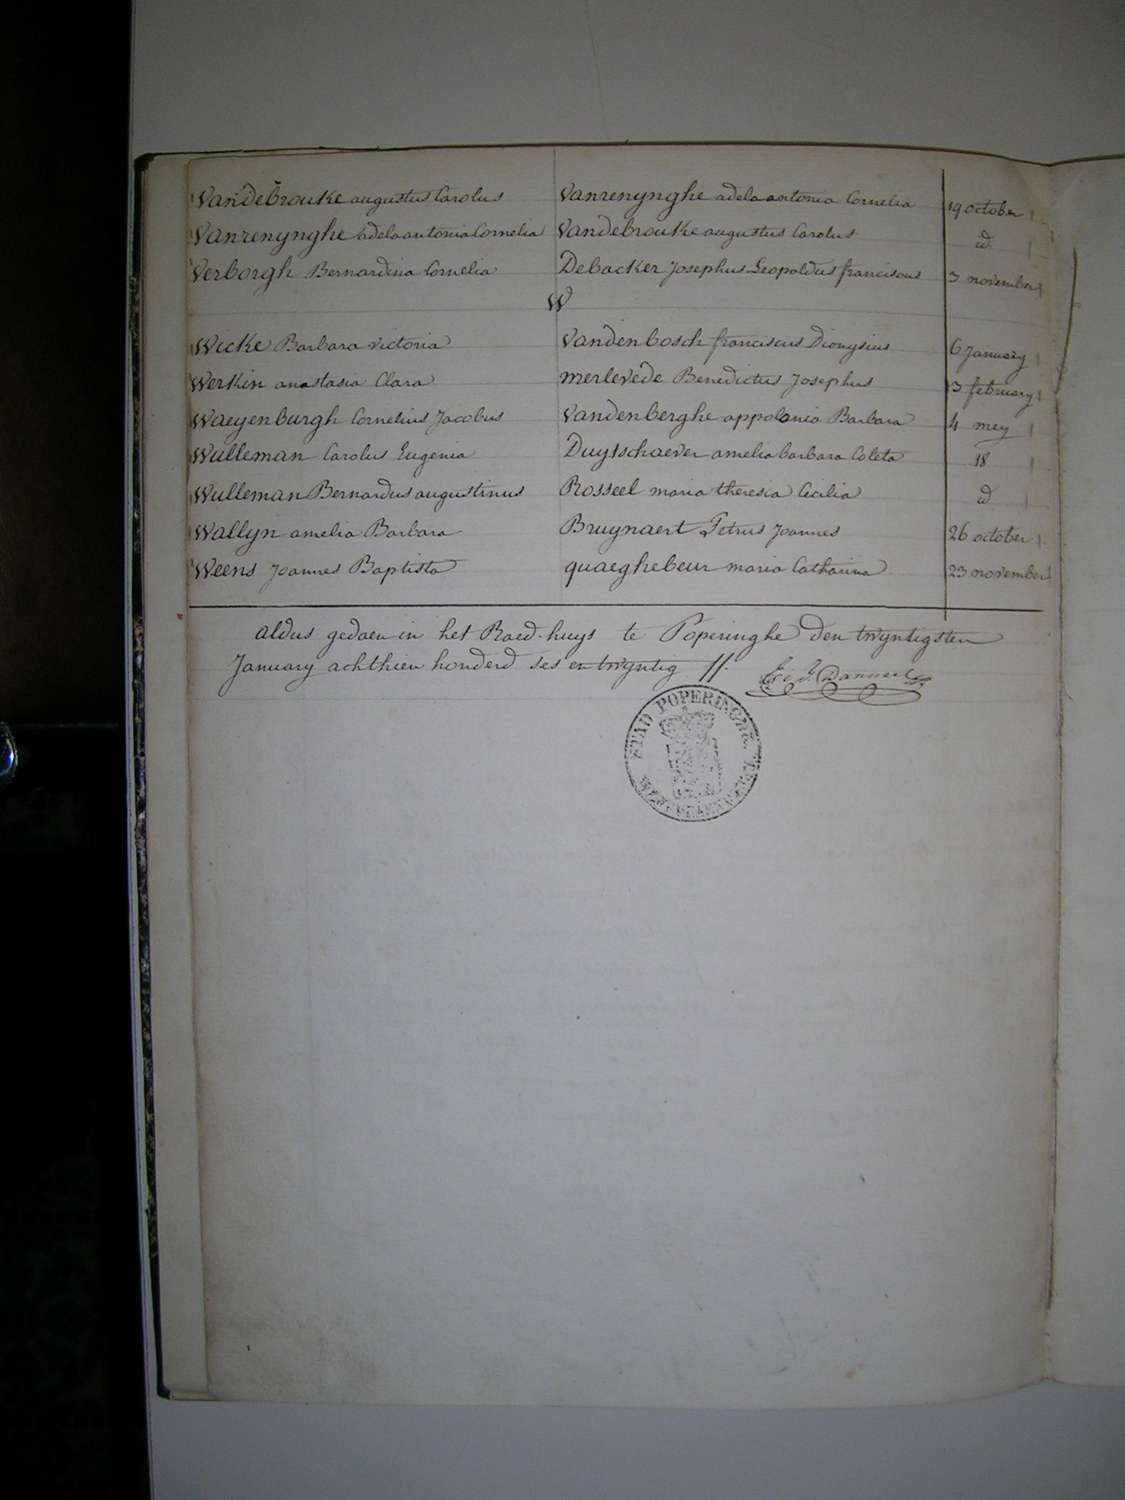 Vandebrouke augustus Carolus Vanrenynghe adela antonia Cornelia 19 october
Vanrenynghe adela antonia Cornelia Vandebrouke augustus Carolus id
Verborgh Bernardina Cornelia Debacker Josephus Leopoldus franciscus 3 november
W
Wicke Barbara victoria Vandenbosch franciscus Dionysius 6 January
Werkin anastasia Clara merlevede Benedictus Josephus 13 february
Waeyenburgh Cornelius Jacobus Vandenberghe appolonia Barbara 4 mey
Wulleman Carolus Eugenia Duytschaever amelia barbara Coleta 18
Wulleman Bernardus augustinus Rosseel maria theresia Cicilia id
Wallyn amelia Barbara Bruynaert Petrus Joannes 26 october
Weens Joannes Baptista quaeghebeur maria Catharina 23 november
aldus gedaen in het Raed-huys te Poperinghe den twyntigsten
January achthien honderd ses en twyntig
STAD POPERINGHE